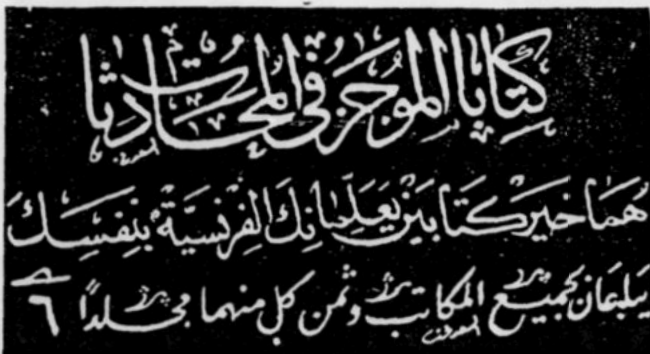 كتابا الموجز في المحادثات
هما خير كتابين يعلمانك الفرنسية بنفسك
يباعان بجميع المكاتب وثمن كل منهما مجلدًا ٦